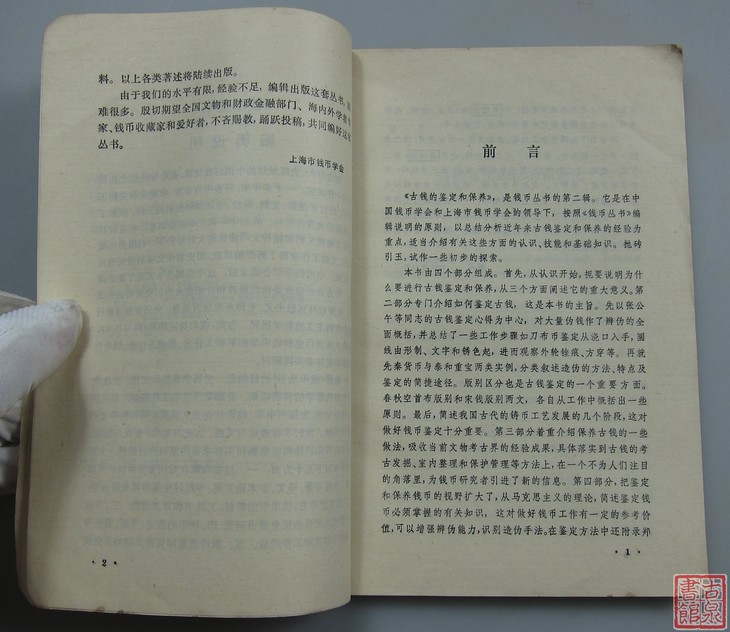 料。以上各类著述将陆续出版。
由于我们的水平有限,经验不足,编辑出版这套丛书,
难很多。殷切期望全国文物和财政金融部门、海内外学
家、钱币收藏家和爱好者,不吝赐教,踊跃投稿,共同编好这
丛书。
上海市钱币学会
·2·
前言
《古钱的鉴定和保养》,是钱币丛书的第二辑。它是在中
国钱币学会和上海市钱币学会的领导下,按照《钱币丛书》编
辑说明的原则,以总结分析近年来古钱鉴定和保养的经验为
重点,适当介绍有关这些方面的认识、技能和基础知识。抛砖
引玉,试作一些初步的探索。
本书由四个部分组成。首先,从认识开始,扼要说明为什
么要进行古钱鉴定和保养,从三个方面阐述它的重大意义。第
二部分专门介绍如何鉴定古钱,这是本书的主旨。先以张公
午等同志的古钱鉴定心得为中心,对大量伪钱作了辨伪的全
面概括,并总结了一些工作步骤如刀布币鉴定从浇口入手,圆
线由形制、文字和锈色起,进而观察外轮锉痕、方穿等。再就
先秦货币与泰和重宝两类实例,分类叙述造伪的方法、特点及
鉴定的简捷途径。版别区分也是古钱鉴定的一个重要方面。
春秋空首布版别和宋钱版别两文,各自从工作中概括出一些
原则。最后,简述我国古代的铸币工艺发展的几个阶段,这对
做好钱币鉴定十分重要。第三部分着重介绍保养古钱的一些
做法,吸收当前文物考古界的经验成果,具体落实到古钱的考
古发掘、室内整理和保护管理等方法上,在一个不为人们注目
的角落里,为钱币研究者引进了新的信息。第四部分,把鉴定
和保养钱币的视野扩大了,从马克思主义的理论,简述鉴定钱
币必须掌握的有关知识,这对做好钱币工作有一定的参考价
值,可以增强辨伪能力,识别造伪手法。在鉴定方法中还附录郑
·1·
古泉
書館